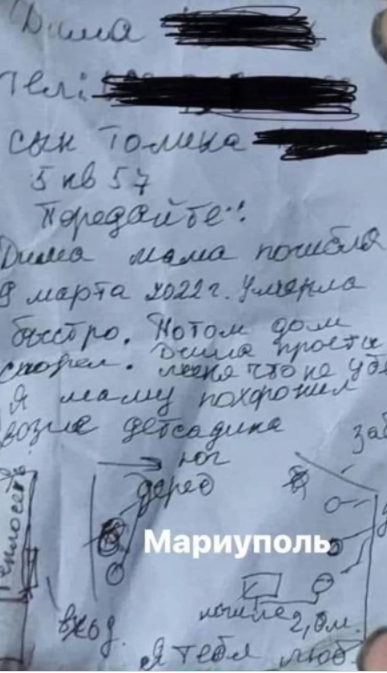 Дима
Тел:
сын Толика
5 кв 57
Передайте!
Дима мама погибла
9 марта 2022 г. Умерла
быстро. Потом дом
сгорел. Дима прости
меня что не
Я маму похоронил
возле детсадика
юг
дерево
Теплосеть
Мариуполь
вход
2,8 м.
Я тебя люб